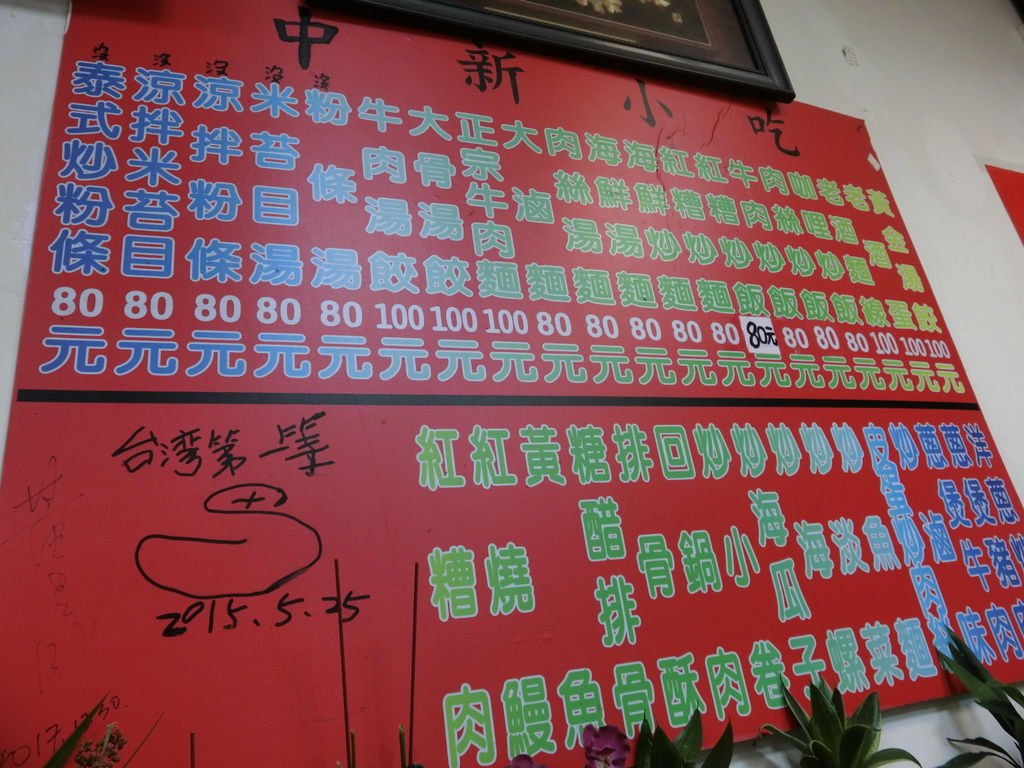 中新小吃
沒
泰式炒粉條80元
沒
涼拌米苔目80元
沒
涼拌粉條80元
沒
米苔目湯80元
沒
粉條湯80元
牛肉湯餃100元
大骨湯餃100元
正宗牛肉麵100元
大滷麵80元
肉絲湯麵80元
海鮮湯麵80元
海鮮炒麵80元
紅糟炒麵80元
紅糟炒飯80元
牛肉炒飯80元
肉絲炒飯80元
咖哩炒飯80元
老酒麵線100元
老酒蛋100元
黃金湯餃100元
台灣第一等
2015.5.25
紅糟肉
紅燒鰻
黃魚
糖醋排骨
排骨酥
回鍋肉
炒小卷
炒海瓜子
炒海螺
炒淡菜
炒魚麵
皮蛋炒肉
炒滷味
蔥煲牛肉
蔥煲豬肉
洋蔥炒